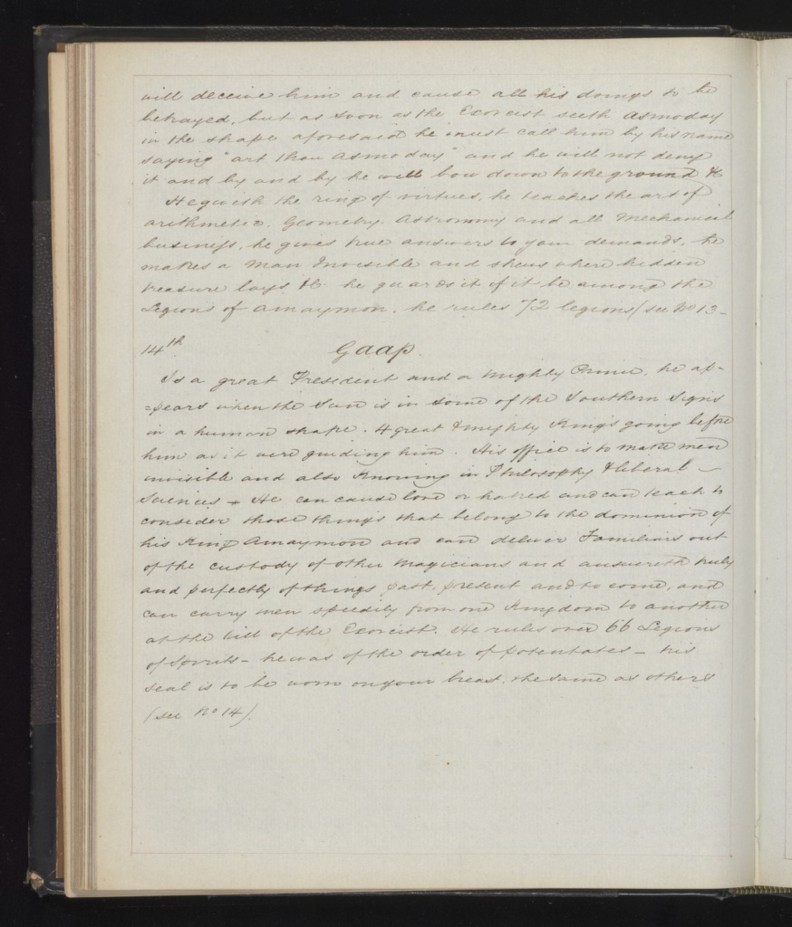 will deceive him and cause all his doings to be
betrayed, but as soon as the Exorcist seeth Asmoday
in the shape aforesaid he must call him by his name
saying "art thou Asmoday" and he will not deny
it and by and by he will bow down to the ground &c
He giveth the ring of virtues, he teaches the art of
arithmetic, Geometry, Astronomy and all Mechanical
business, he gives true answers to your demands, he
makes a Man Invisible and shews where hidden
treasure lays &c he guards it if it be among the
Legions of Amaymon, he rules 72 legions (see No 13 -
14th Gaap
Is a great President and a Mighty Prince, he ap-
-pears when the Sun is in some of the Southern Signs
in a human shape. 4 great & mighty Kings going before
him as it were guiding him. His office is to make men
invisible and also Knowing in Philosophy & liberal -
Sciences - He can cause love or hatred and can teach to
consider those things that belong to the dominion of
his King Amaymon and can deliver Familiars out
of the custody of other Magicians and answereth truly
and perfectly of things past, present and to come, and
can carry men speedily from one Kingdom to another
at the will of the Exorcist. He rules over 66 Legions
of Spirits - he was of the order of potentates - his
seal is to be worn on your breast, the same as others
(see No 14).